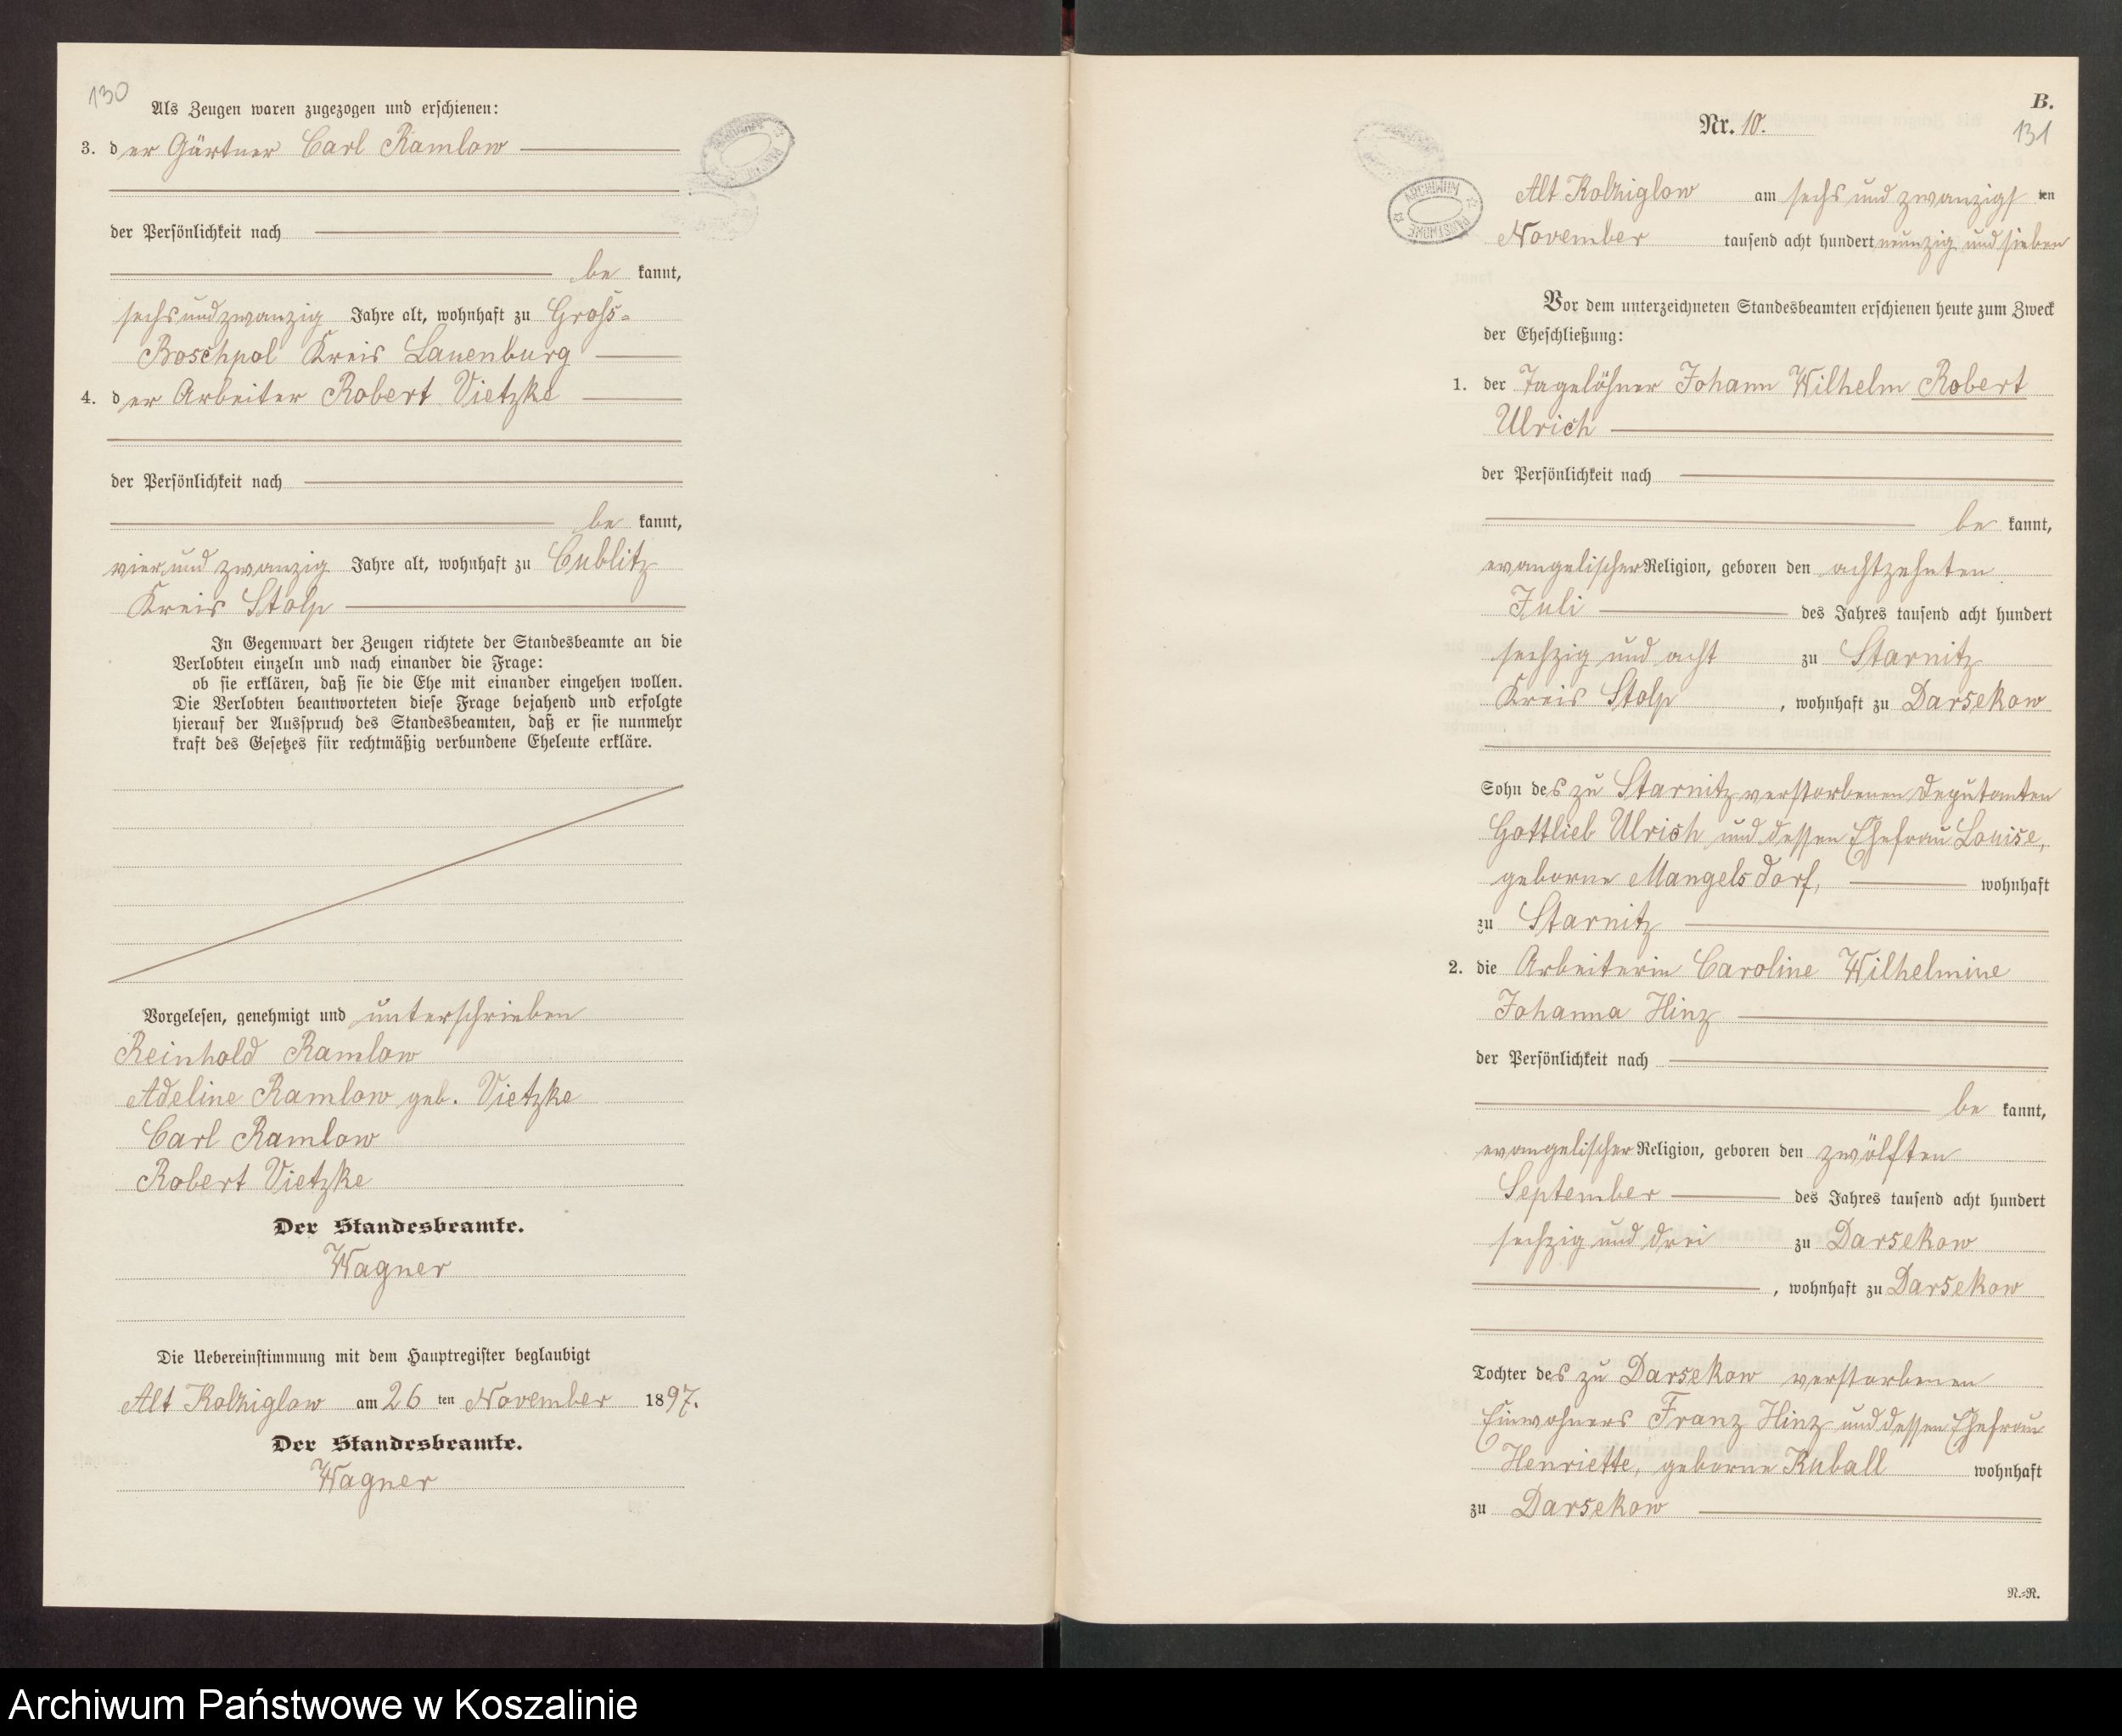 130
Als Zeugen waren zugezogen und erschienen:
3. der Gärtner Carl Ramlow
der Persönlichkeit nach
be kannt,
sechs und zwanzig Jahre alt, wohnhaft zu Groß-
Boschpol Kreis Lauenburg
4. der Arbeiter Robert Vietzke
der Persönlichkeit nach
be kannt,
vier und zwanzig Jahre alt, wohnhaft zu Cublitz
Kreis Stolp
In Gegenwart der Zeugen richtete der Standesbeamte an die
Verlobten einzeln und nach einander die Frage:
ob sie erklären, daß sie die Ehe mit einander eingehen wollen.
Die Verlobten beantworteten diese Frage bejahend und erfolgte
hierauf der Ausspruch des Standesbeamten, daß er sie nunmehr
kraft des Gesetzes für rechtmäßig verbundene Eheleute erkläre.
Vorgelesen, genehmigt und unterschrieben
Reinhold Ramlow
Adeline Ramlow geb. Vietzke
Carl Ramlow
Robert Vietzke
Der Standesbeamte.
Wagner
Die Uebereinstimmung mit dem Hauptregister beglaubigt
Alt Kolziglow am 26 ten November 1897.
Der Standesbeamte.
Wagner
B.
Nr. 10.
131
ARCHIWUM PAŃSTWOWE
Alt Kolziglow am sechs und zwanzigs ten
November tausend acht hundert neunzig und sieben
Vor dem unterzeichneten Standesbeamten erschienen heute zum Zweck
der Eheschließung:
1. der Tagelöhner Johann Wilhelm Robert
Ulrich
der Persönlichkeit nach
be kannt,
evangelischer Religion, geboren den achtzehnten
Juli des Jahres tausend acht hundert
sechzig und acht zu Starnitz
Kreis Stolp, wohnhaft zu Darsekow
Sohn des zu Starnitz verstorbenen Deputanten
Gottlieb Ulrich und dessen Ehefrau Louise,
geborne Mangelsdorf, wohnhaft
zu Starnitz
2. die Arbeiterin Caroline Wilhelmine
Johanna Hinz
der Persönlichkeit nach
be kannt,
evangelischer Religion, geboren den zwölften
September des Jahres tausend acht hundert
sechzig und drei zu Darsekow
, wohnhaft zu Darsekow
Tochter des zu Darsekow verstorbenen
Einwohners Franz Hinz und dessen Ehefrau
Henriette, geborne Kuball wohnhaft
zu Darsekow
N.-R.
Archiwum Państwowe w Koszalinie